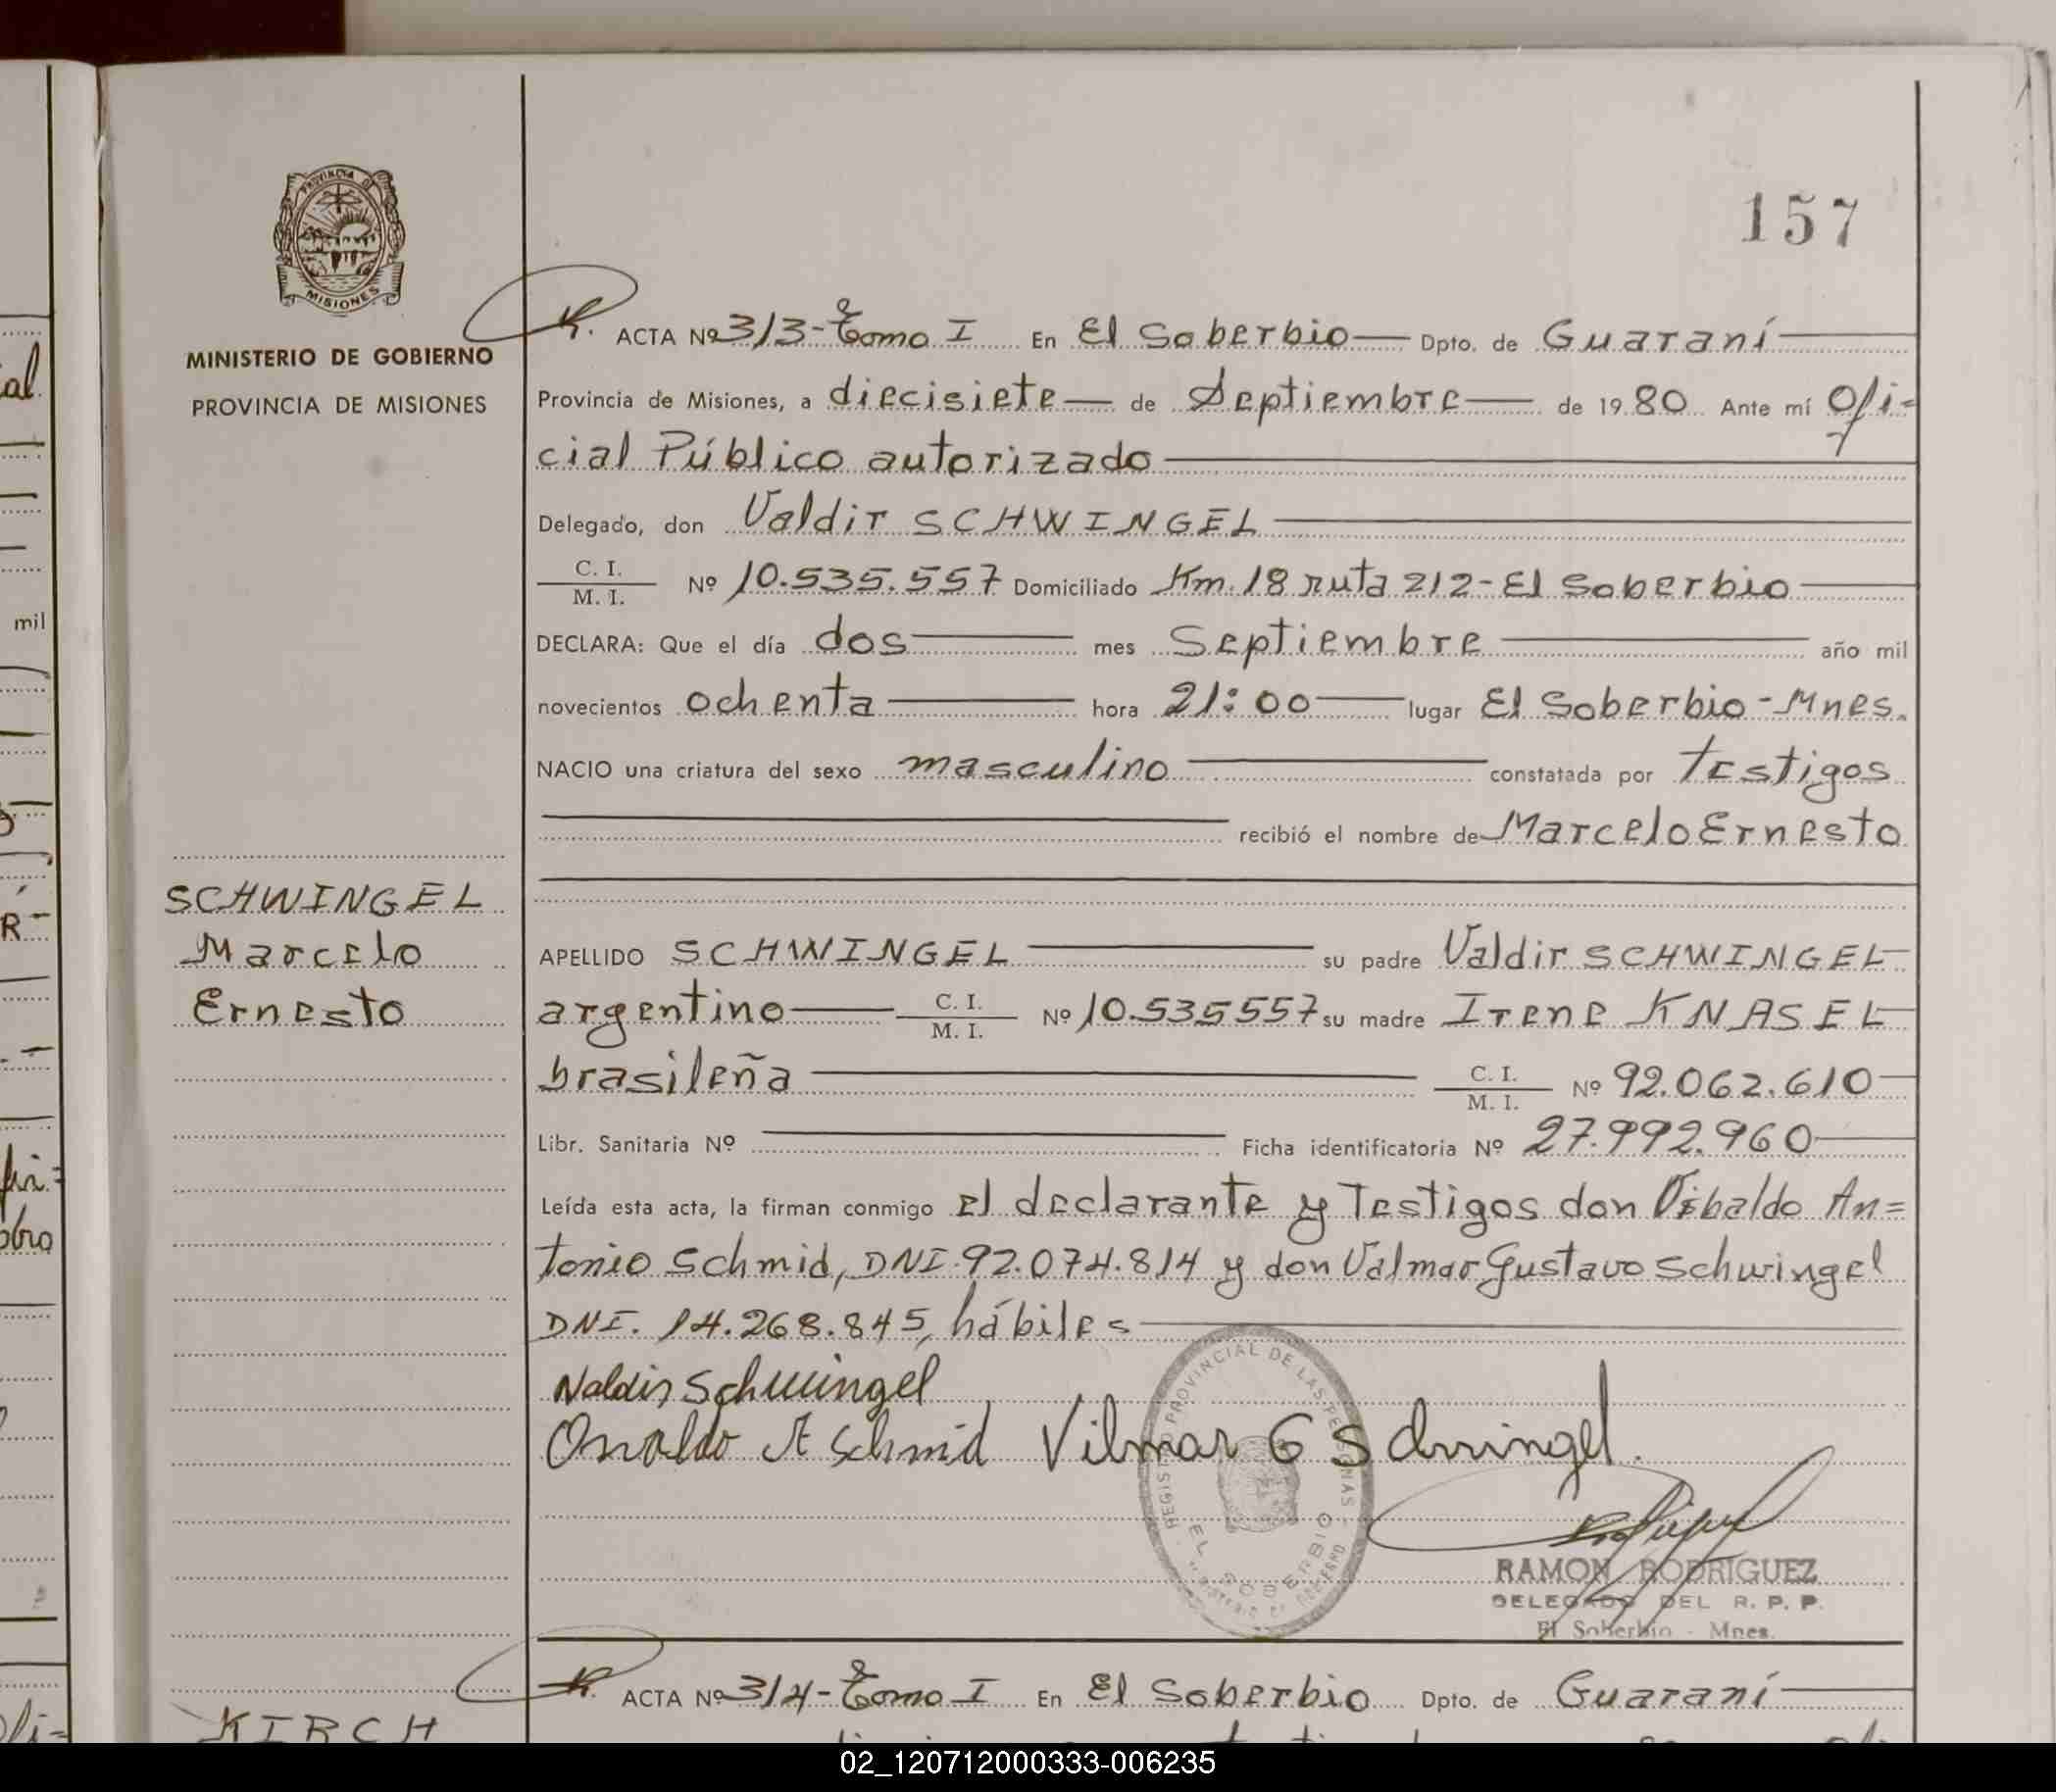 157
PROVINCIA DE
MISIONES
MINISTERIO DE GOBIERNO
PROVINCIA DE MISIONES
SCHWINGEL
Marcelo
Ernesto
ACTA Nº 313-Tomo I En El Soberbio Dpto. de Guaraní
Provincia de Misiones, a diecisiete de Septiembre de 1980 Ante mí Ofi-
cial Público autorizado
Delegado, don Valdir SCHWINGEL
C. I.
M. I. Nº 10.535.557 Domiciliado Km. 18 ruta 212-El Soberbio
DECLARA: Que el día dos mes Septiembre año mil
novecientos ochenta hora 21:00 lugar El Soberbio-Mnes.
NACIO una criatura del sexo masculino constatada por testigos
recibió el nombre de Marcelo Ernesto
APELLIDO SCHWINGEL su padre Valdir SCHWINGEL
argentino C. I. M. I. Nº 10.535557 su madre Irene KNASEL
brasileña C. I. M. I. Nº 92.062.610
Libr. Sanitaria Nº Ficha identificatoria Nº 27.992.960
Leída esta acta, la firman conmigo el declarante y Testigos don Osbaldo An=
tonio Schmid, DNI.92.074.814 y don Valmar Gustavo Schwingel
DNI. 14.268.845, hábiles
Valdir Schwingel
Osvaldo A Schmid Vilmar G Schwingel.
REGISTRO PROVINCIAL DE LAS PERSONAS
EL SOBERBIO
RAMON RODRIGUEZ
DELEGADO DEL R. P. P.
El Soberbio - Mnes.
ACTA Nº 314-Tomo I En El Soberbio Dpto. de Guaraní
KIRCH
02_120712000333-006235